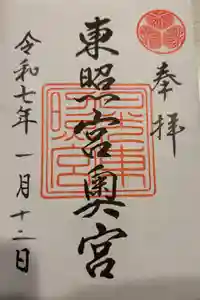 奉拝
東照宮奥宮
令和七年一月十二日